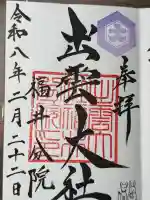 奉拝
出雲大社
福井分院
令和八年二月二十二日